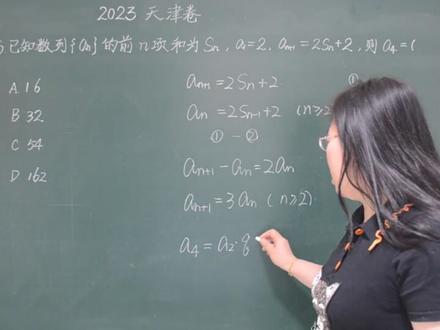 2023 天津卷
已知数列{an}的前n项和为Sn, a1=2, an+1=2Sn+2, 则a4=(
A 16
B 32
C 54
D 162
an+1=2Sn+2 ①
an=2Sn-1+2 (n≥2
①-②
an+1-an=2an
an+1=3an (n≥2)
a4=a2·q